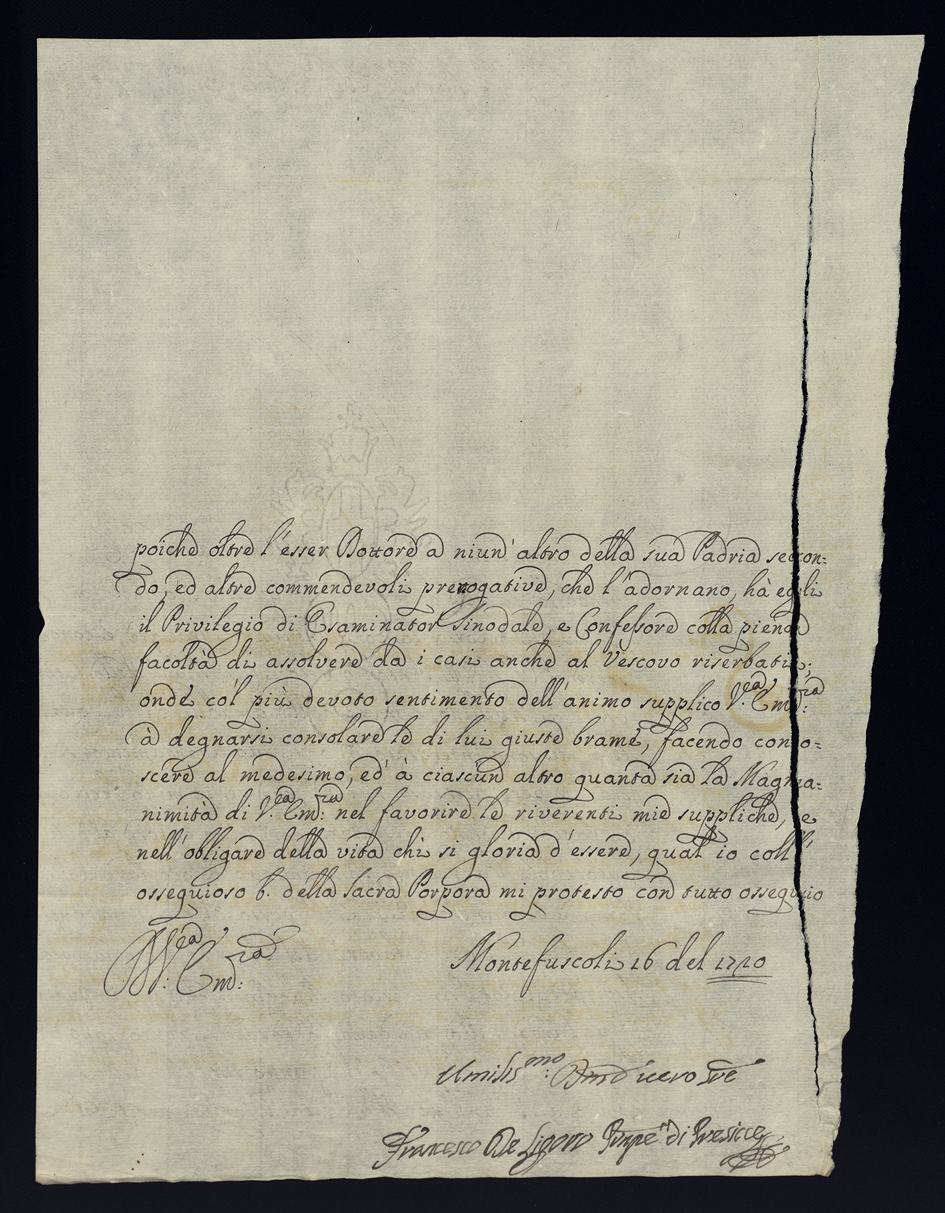 poiche oltre l'esser Dottore a niun' altro della sua Padria secon=
do, ed altre commendevoli prerogative, che l'adornano, hà egli
il Privilegio di Esaminator Sinodale, e Confessore colla piena
facoltà di assolvere da i casi anche al Vescovo riserbati;
onde cól più devoto sentimento dell'animo supplico V.ra Em.za
à degnarsi consolare le di lui giuste brame, facendo cono=
scere al medesimo, ed' à ciascun altro quanta sia la Magna=
nimità di V.ra Em.za nel favorire le riverenti mie suppliche, e
nell'obligare della vita chi si gloria d'essere, qual' io coll'
osseguioso b. della Sacra Porpora mi protesto con tutto osseguio
V.ra Em.za
Montefuscoli 16 del 1720
Umilis.mo
Francesco De Ligoro di Presicce